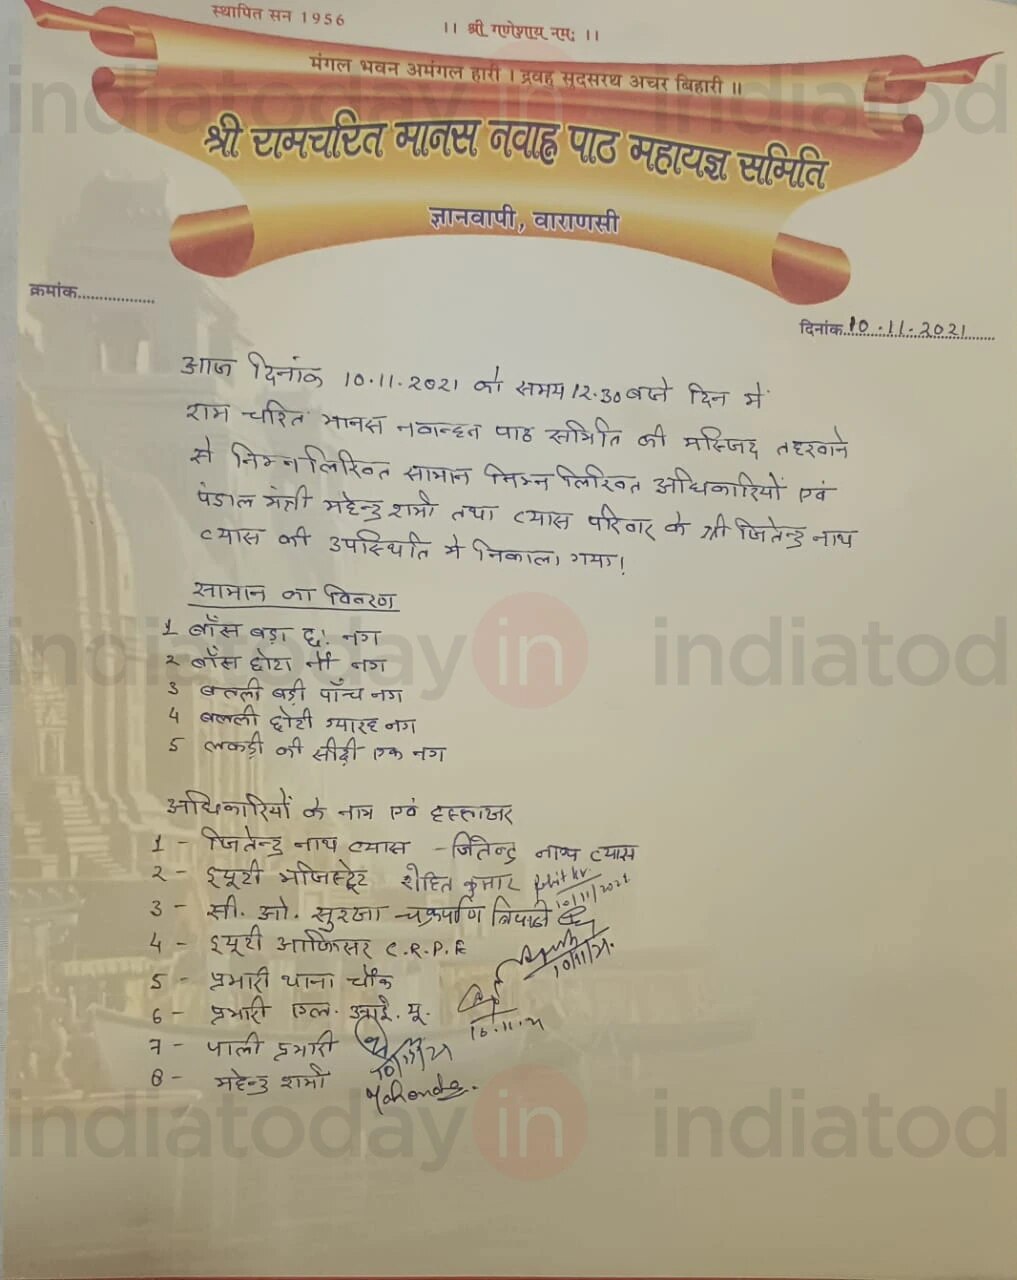 स्थापित सन 1956
।। श्री गणेशाय नम: ।।
मंगल भवन अमंगल हारी । द्रवहु सुदसरथ अचर बिहारी ॥
श्री रामचरित मानस नवाह्न पाठ महायज्ञ समिति
ज्ञानवापी, वाराणसी
क्रमांक..................
दिनांक 10.11.2021
आज दिनांक 10.11.2021 को समय 12.30 बजे दिन में
राम चरित मानस नवान्हन पाठ समिति की मस्जिद तहखाने
से निम्नलिखित सामान निम्नलिखित अधिकारियों एवं
पंडाल मंत्री महेन्द्र शर्मा तथा व्यास परिवार के श्री जितेन्द्र नाथ
व्यास की उपस्थिति मे निकाला गया।
सामान का विवरण
1 बाँस बड़ा छः नग
2 बाँस छोटा नौ नग
3 बल्ली बड़ी पाँच नग
4 बल्ली छोटी ग्यारह नग
5 लकड़ी की सीढ़ी एक नग
अधिकारियों के नाम एवं हस्ताक्षर
1 - जितेन्द्र नाथ व्यास - जितेन्द्र नाथ व्यास
2 - ड्यूटी मजिस्ट्रेट रोहित कुमार Rohit Kr 10/11/2021
3 - सी. ओ. सुरक्षा चक्रपाणि त्रिपाठी
4 - ड्यूटी आफिसर C.R.P.F 10/11/21.
5 - प्रभारी थाना चौक
6 - प्रभारी एल. आई. यू. 10.11.21
7 - पाली प्रभारी 10/11/21
8 - महेन्द्र शर्मा Mahendra.
indiatoday in indiatod
indiatoday in indiatod
indiatoday in indiatod